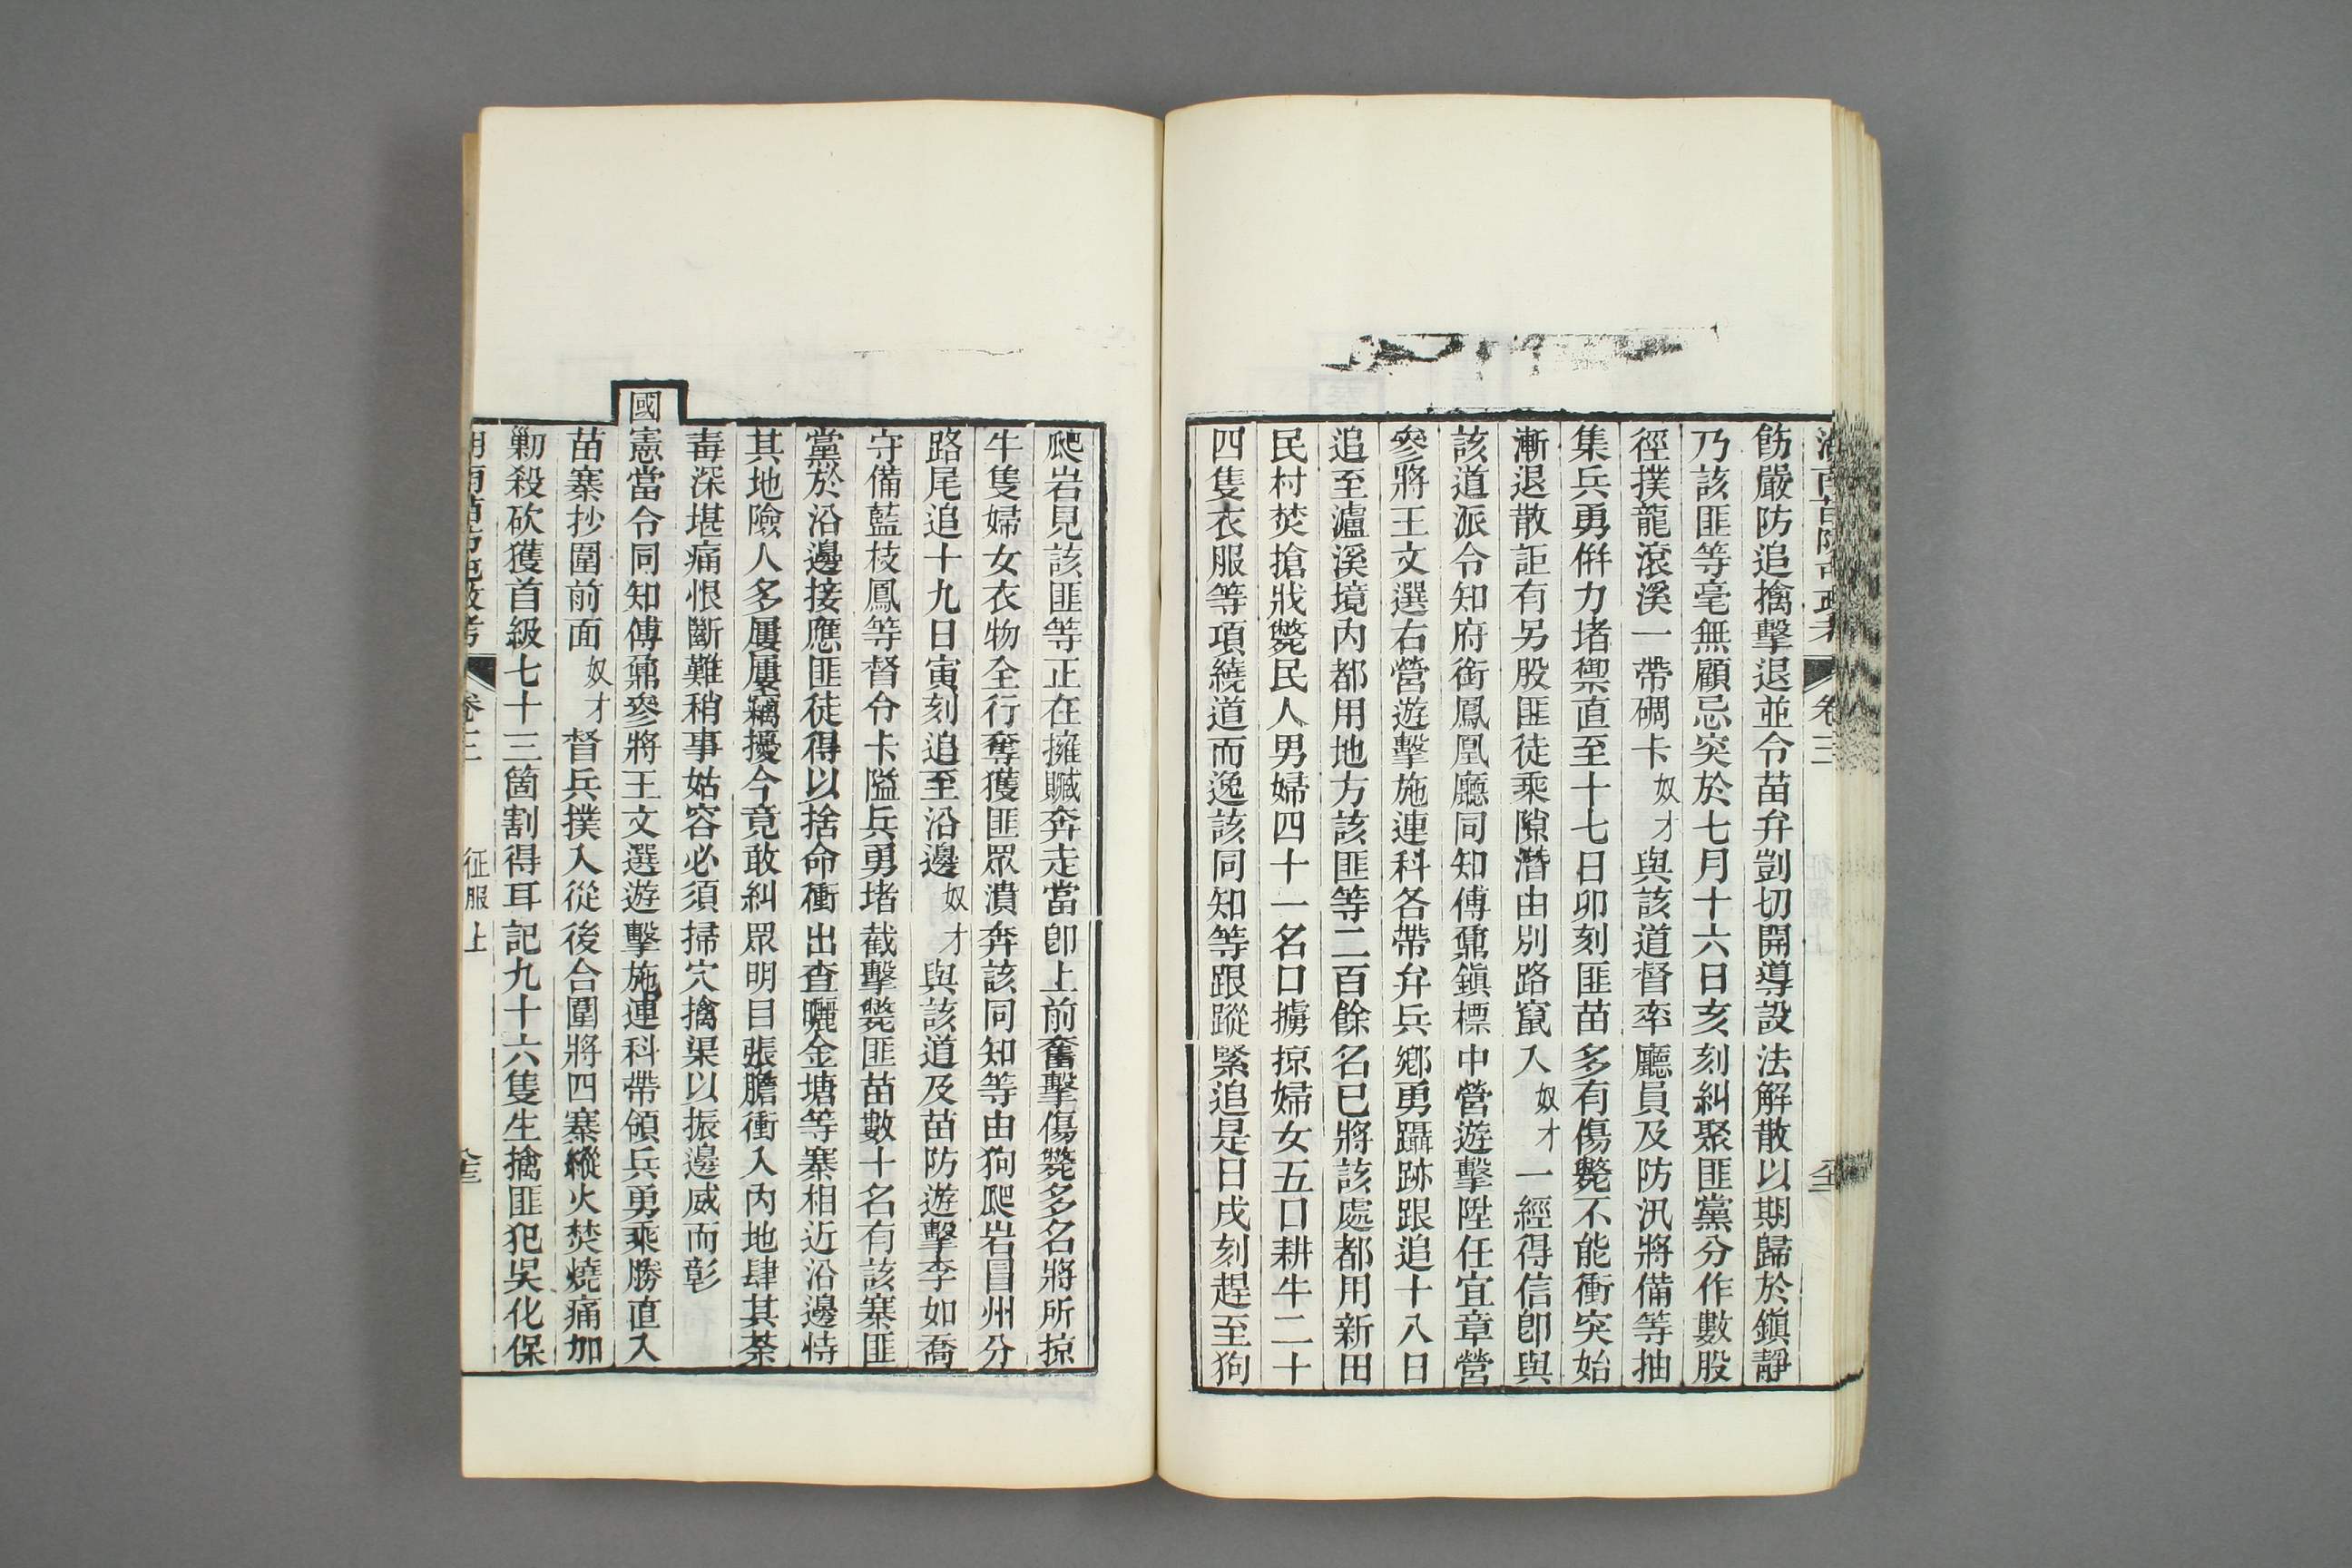 湖南苗防屯政考
卷三
飭嚴防追擒擊退並令苗弁剴切開導設法解散以期歸於鎭靜
乃該匪等毫無顧忌突於七月十六日亥刻糾聚匪黨分作數股
徑撲龍滾溪一帶碉卡奴才與該道督率廳員及防汛將備等抽
集兵勇倂力堵禦直至十七日卯刻匪苗多有傷斃不能衝突始
漸退散詎有另股匪徒乘隙潛由別路竄入奴才一經得信卽與
該道派令知府銜鳳凰廳同知傅鼐鎭標中營遊擊陞任宜章營
參將王文選右營遊擊施連科各帶弁兵鄕勇躡跡跟追十八日
追至瀘溪境內都用地方該匪等二百餘名已將該處都用新田
民村焚搶戕斃民人男婦四十一名口擄掠婦女五口耕牛二十
四隻衣服等項繞道而逸該同知等跟蹤緊追是日戌刻趕至狗
爬岩見該匪等正在擁贓奔走當卽上前奮擊傷斃多名將所掠
牛隻婦女衣物全行奪獲匪眾潰奔該同知等由狗爬岩冒州分
路尾追十九日寅刻追至沿邊奴才與該道及苗防遊擊李如喬
守備藍枝鳳等督令卡隘兵勇堵截擊斃匪苗數十名有該寨匪
黨於沿邊接應匪徒得以捨命衝出查曬金塘等寨相近沿邊恃
其地險人多屢屢竊擾今竟敢糾眾明目張膽衝入內地肆其荼
毒深堪痛恨斷難稍事姑容必須掃穴擒渠以振邊威而彰
國憲當令同知傅鼐參將王文選遊擊施連科帶領兵勇乘勝直入
苗寨抄圍前面奴才督兵撲入從後合圍將四寨縱火焚燒痛加
剿殺砍獲首級七十三箇割得耳記九十六隻生擒匪犯吳化保
湖南苗防屯政考
卷三
征服上